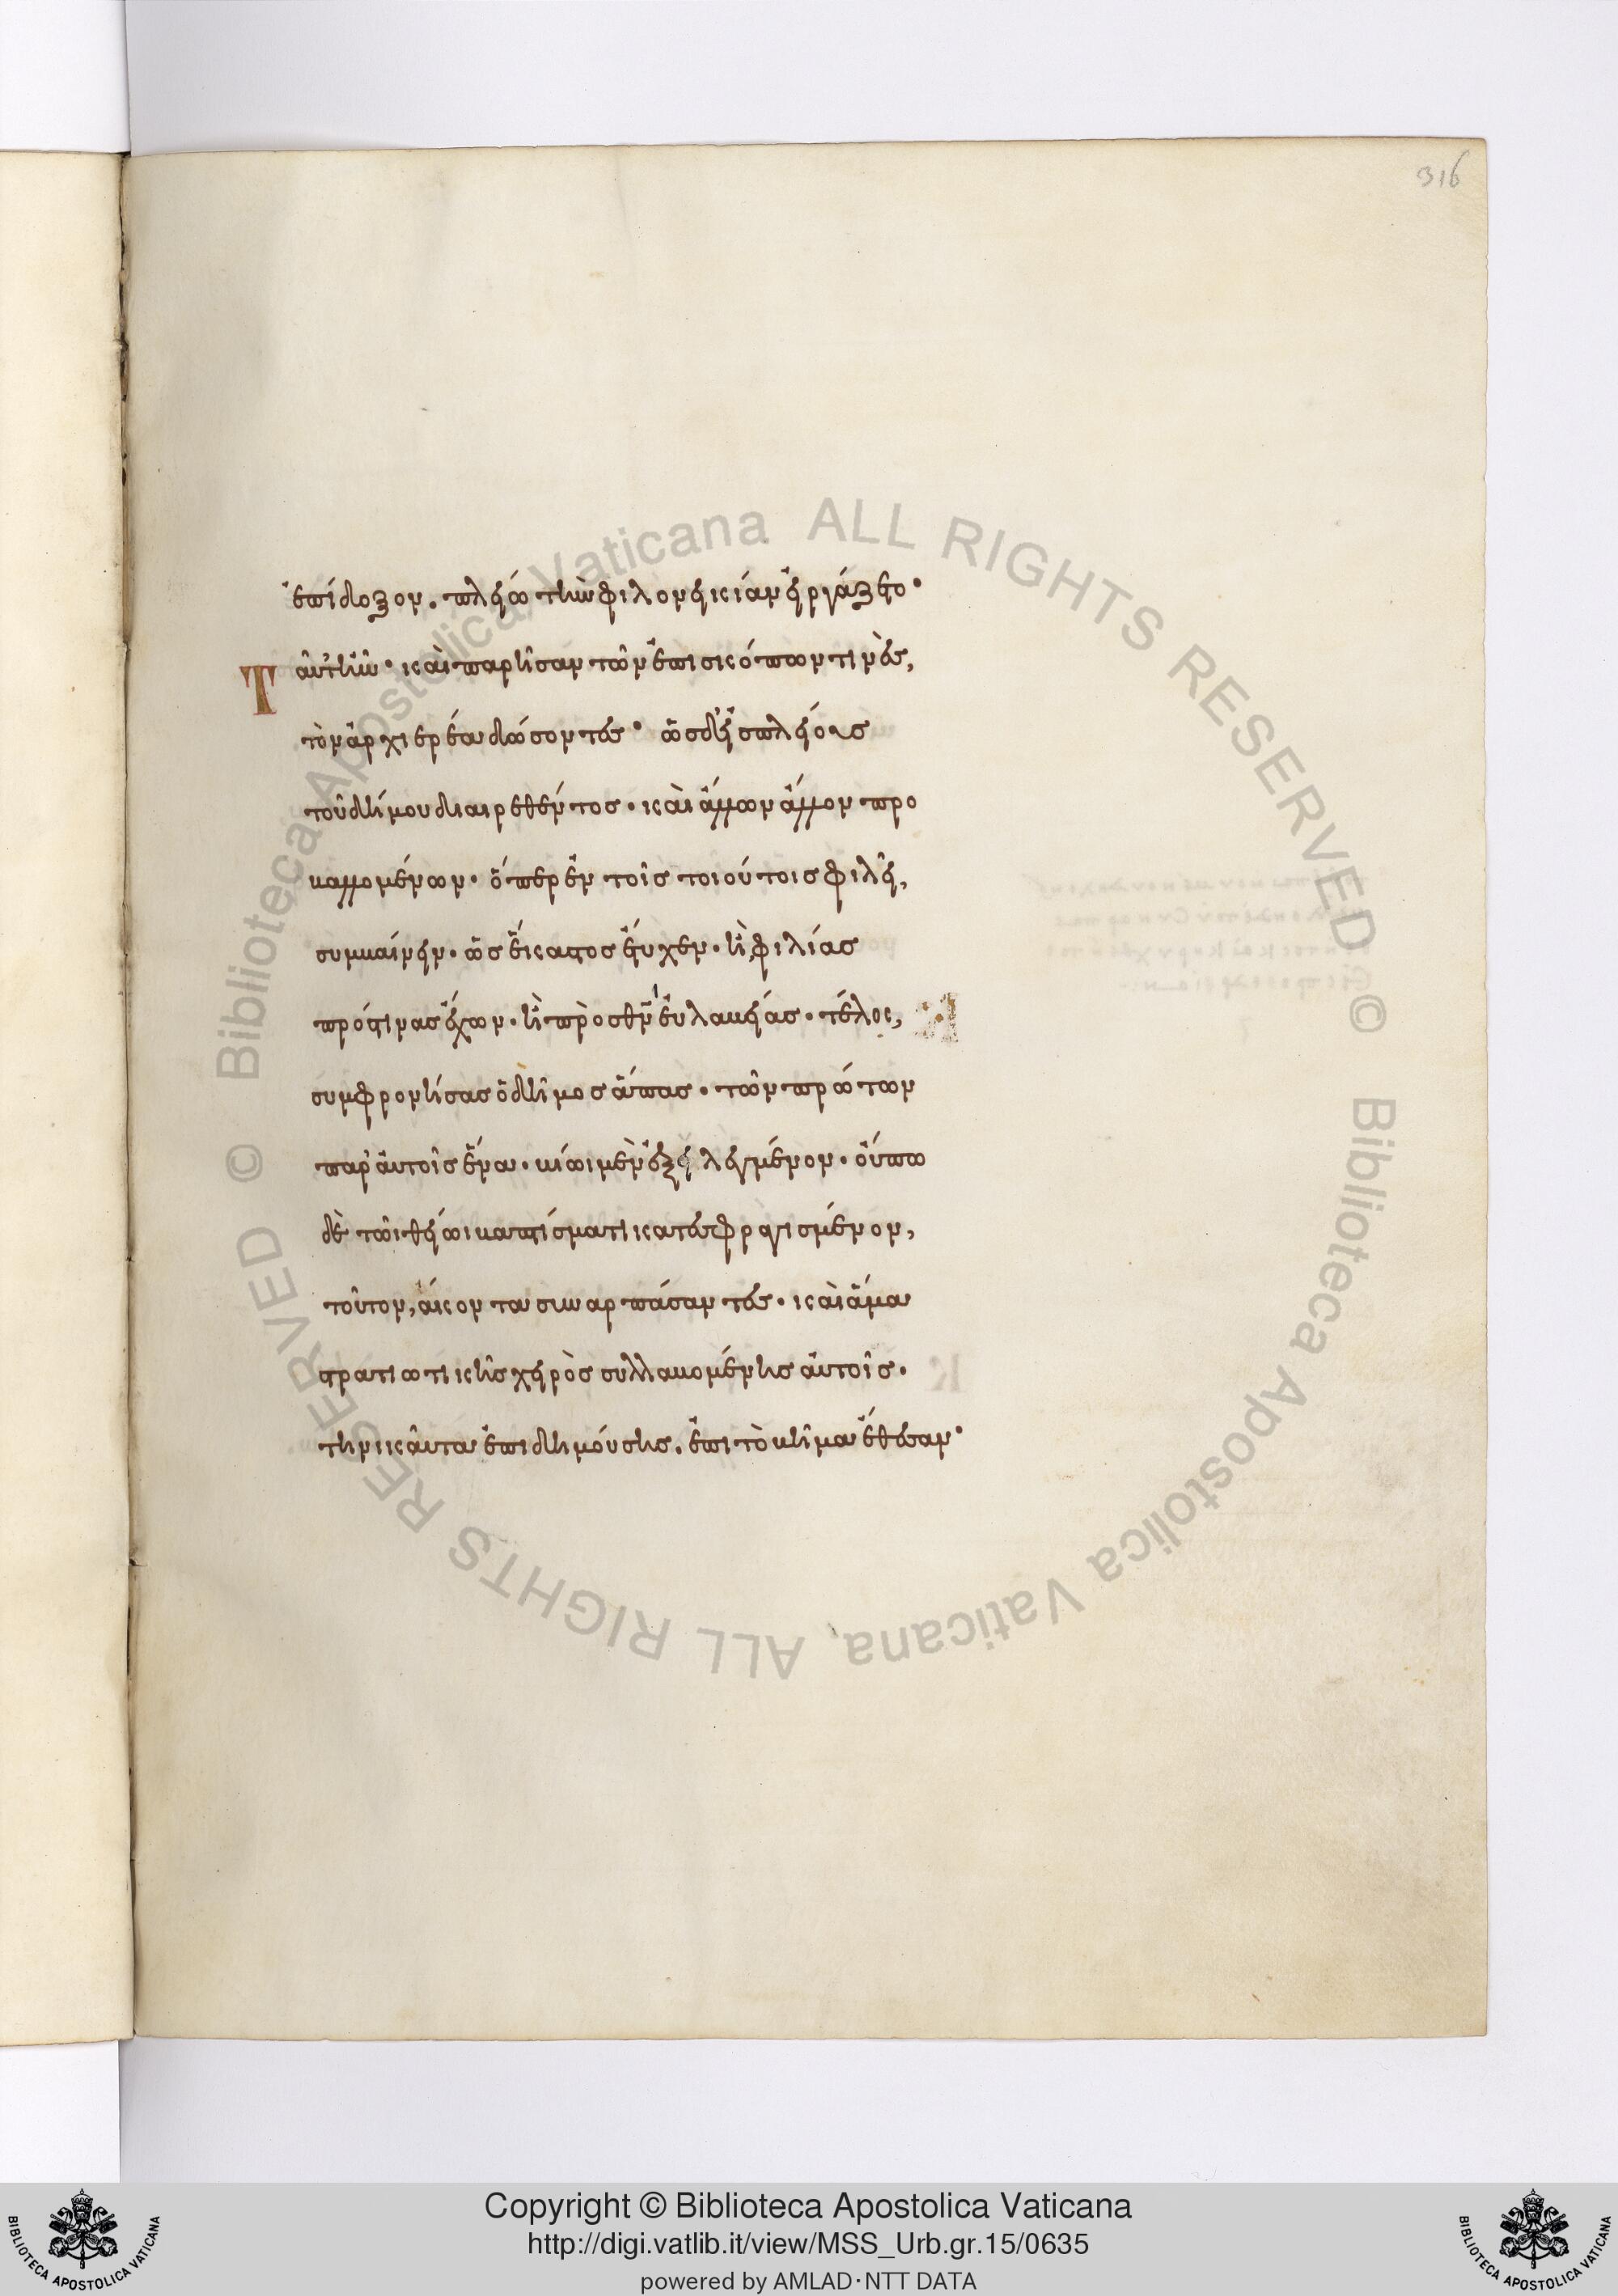 316
ἐπίδοξον. πλείω τὴν φιλονεικίαν εἰργάζετο·
Ταύτῃ· καὶ παρῆσαν τῶν ἐπισκόπων τινὲς,
τὸν ἀρχιερέα δώσοντες· ὡς δ' εἰς πλείους
τοῦ δήμου διαιρεθέντος· καὶ ἄλλων ἄλλον προ
βαλλομένων· ὅπερ ἐν τοῖς τοιούτοις φιλεῖ,
συμβαίνειν· ὡς ἕκαστος ἔτυχεν· ἢ φιλίας
πρός τινας ἔχων· ἢ πρὸς θν εὐλαβείας· τέλος,
συμφρονήσας ὁ δῆμος ἅπας· τῶν πρώτων
παρ' αὐτοῖς ἕνα· βίωι μὲν ἐξειλεγμένον· οὔπω
δὲ τῶι θείωι βαπτίσματι κατεσφραγισμένον,
τοῦτον, ἄκοντα συναρπάσαντες· καὶ ἅμα
στρατιωτικῆς χειρὸς συλλαβομένης αὐτοῖς·
τηνικαῦτα ἐπιδημούσης. ἐπὶ τὸ βῆμα ἔθεσαν·
Copyright © Biblioteca Apostolica Vaticana
http://digi.vatlib.it/view/MSS_Urb.gr.15/0635
powered by AMLAD·NTT DATA
BIBLIOTECA APOSTOLICA VATICANA
BIBLIOTECA APOSTOLICA VATICANA
© Biblioteca Apostolica Vaticana ALL RIGHTS RESERVED
© Biblioteca Apostolica Vaticana, ALL RIGHTS RESERVED